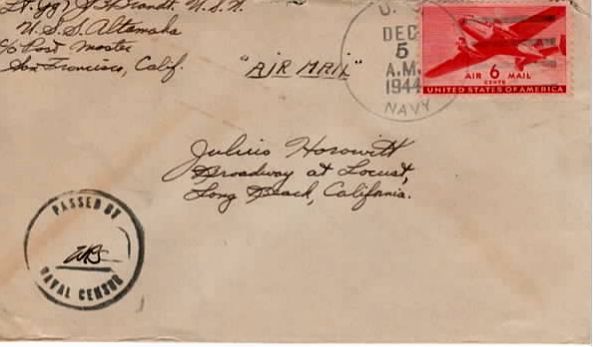 Lt. (jg) J. F. Brandt. U.S.N.
U.S.S. Altamaha
% Post Master
San Francisco, Calif.
"AIR MAIL"
U. S.
DEC
5
A.M.
1944
NAVY
AIR 6 MAIL
CENTS
UNITED STATES OF AMERICA
Julius Horowitt
Broadway at Locust,
Long Beach, California.
PASSED BY
NAVAL CENSOR